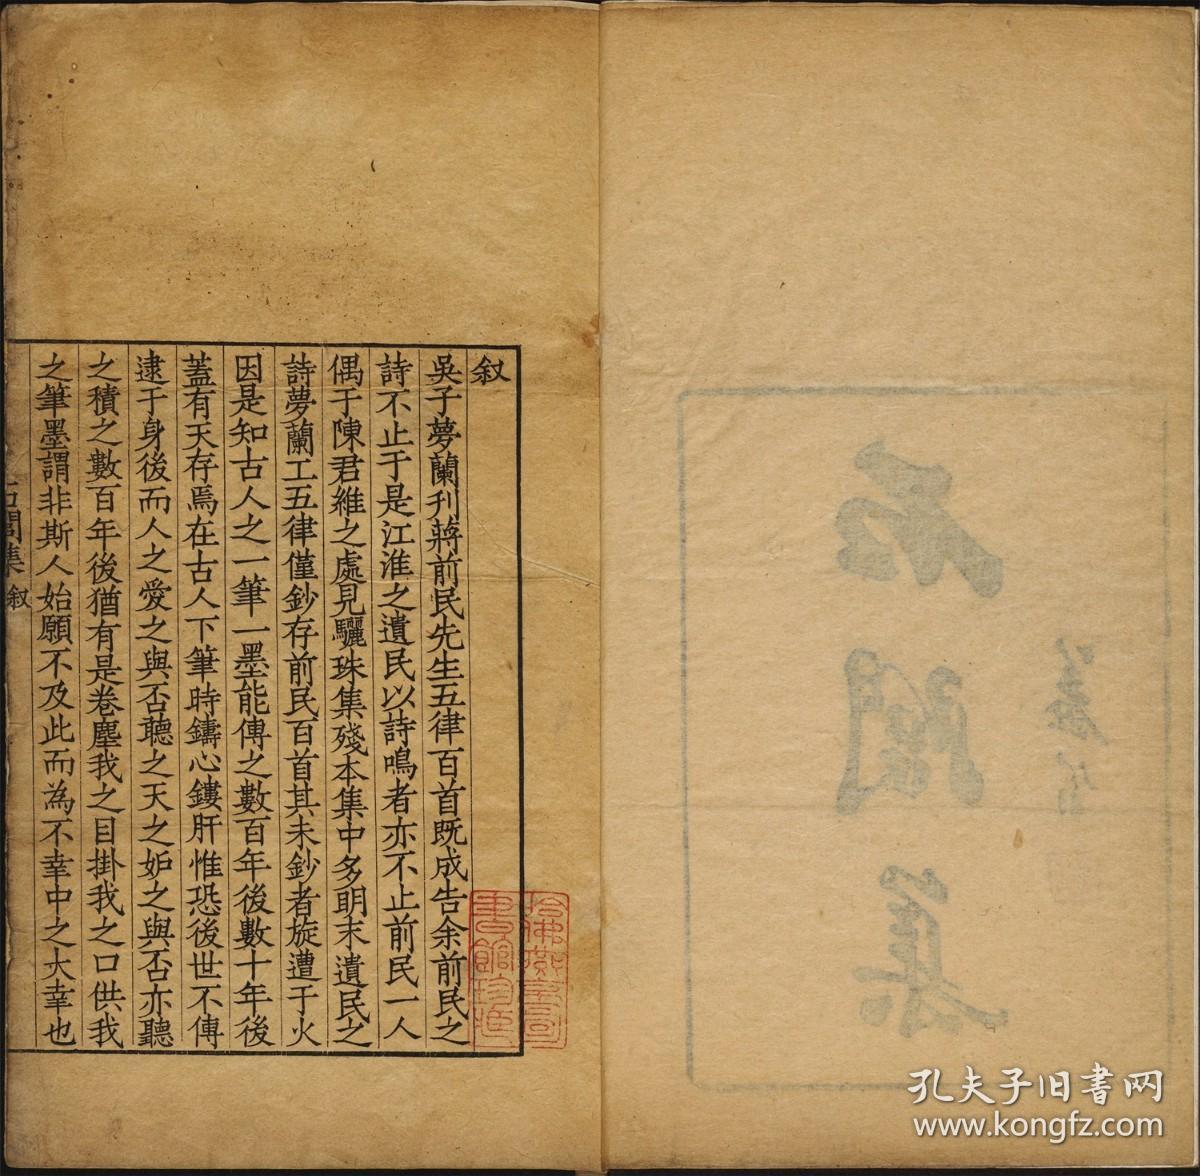 石
閭
集
叙
吳子夢蘭刋蔣前民先生五律百首既成告余前民之
詩不止于是江淮之遺民以詩鳴者亦不止前民一人
偶于陳君維之處見驪珠集殘本集中多明末遺民之
詩夢蘭工五律僅鈔存前民百首其未鈔者旋遭于火
因是知古人之一筆一墨能傳之數百年後數十年後
蓋有天存焉在古人下筆時鑄心鏤肝惟恐後世不傳
逮于身後而人之愛之與否聽之天之妒之與否亦聽
之積之數百年後猶有是卷塵我之目掛我之口供我
之筆墨謂非斯人始願不及此而為不幸中之大幸也
石閭集 叙
孔夫子旧书网
www.kongfz.com